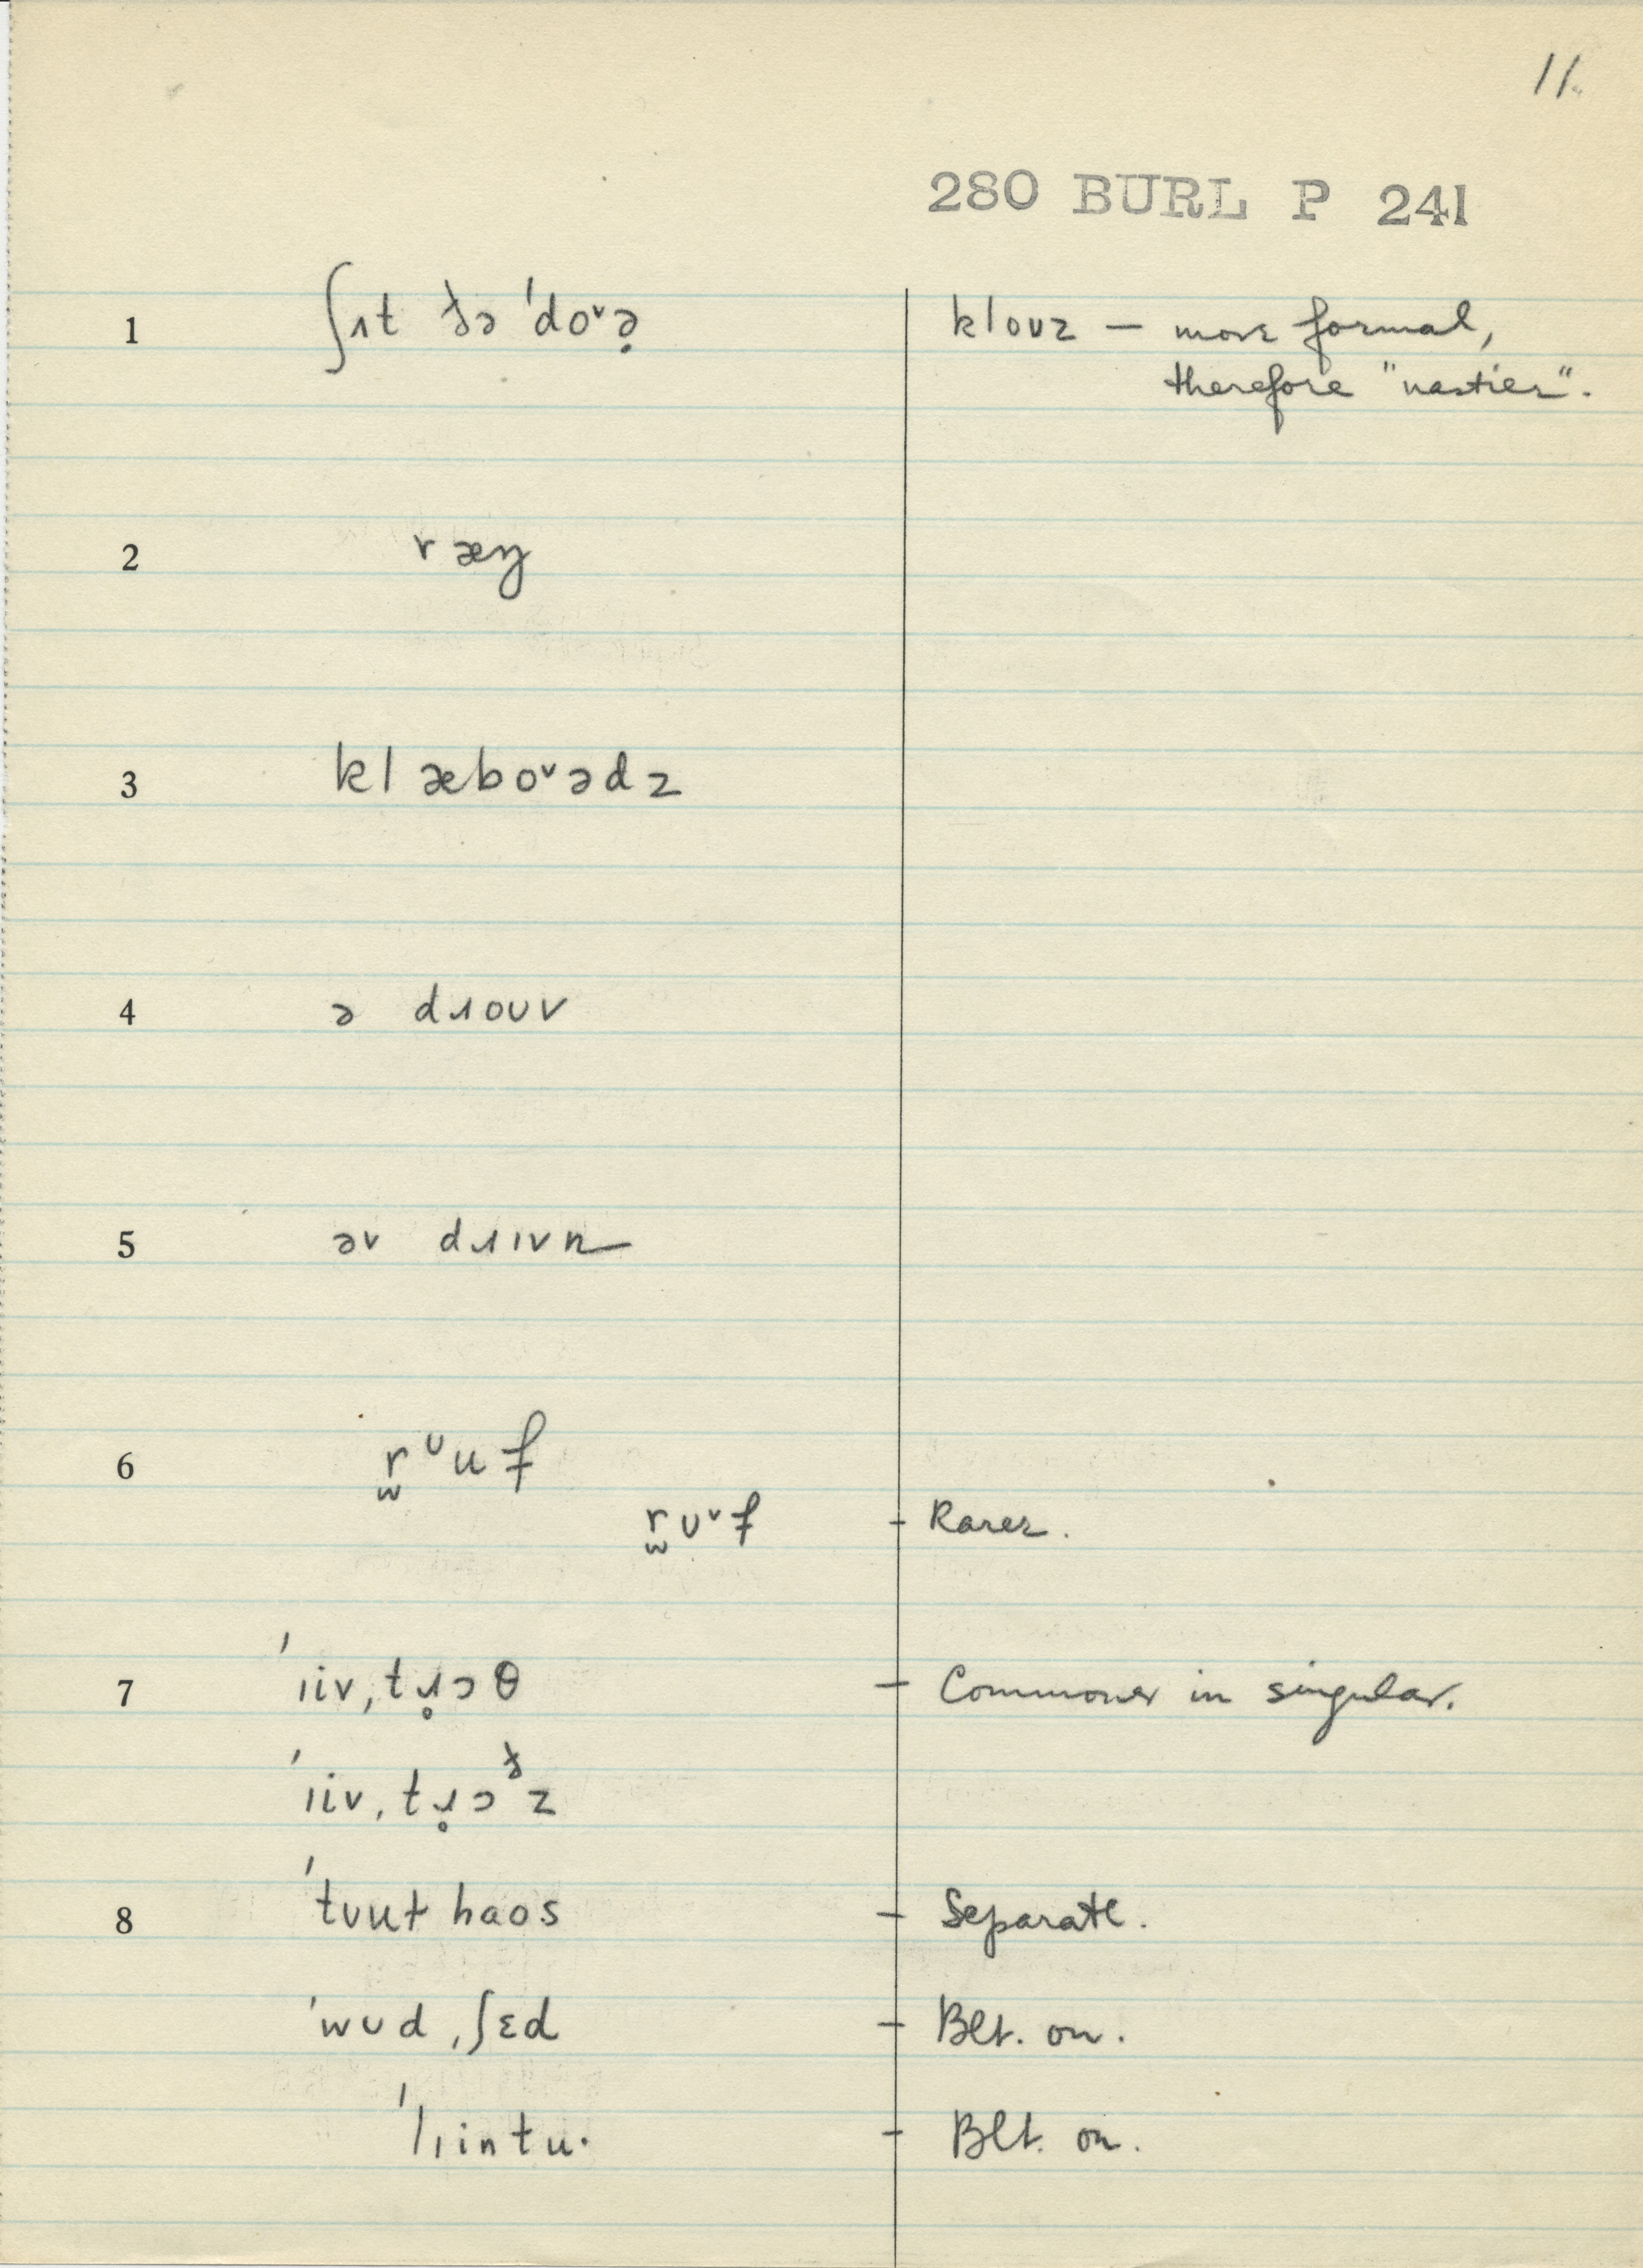 11.
280 BURL P 241
1 ʃʌt ðə ˈdoᵛə̣ klouz – more formal,
therefore "nastier".
2 ræŋ
3 klæboᵛədz
4 ə dɹouv
5 əv dɹɪvn
6 r̫ᶸuf
r̫ʊᵛf – Rarer.
7 ˈɪiv,tɹ̥ɔθ – Commoner in singular.
ˈɪiv,tɹ̥ɔᶞz
8 ˈtʊut haos – Separate.
ˈwʊd,ʃɛd – Blt. on.
ˈlɪintu· – Blt. on.